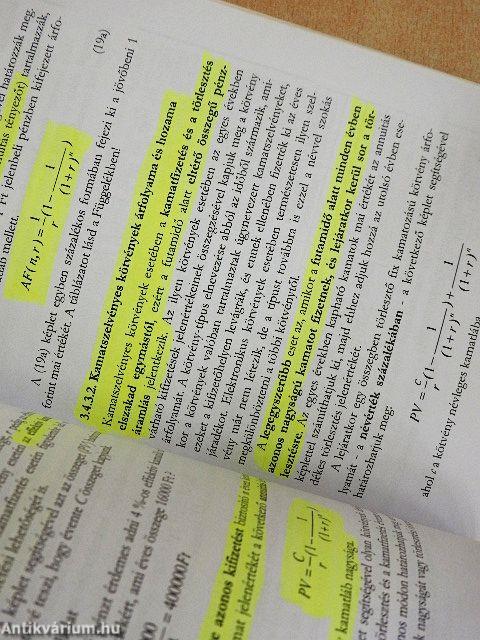 vel határozzák meg
nuitás tényező) tartalmazzák,
t jelenbeli pénzben kifejezett árfo-
zab mellett.
AF(n, r) = 1/r (1 - 1/(1 + r)^n) (19a)
A (19a) képlet egyben százalékos formában fejezi ki a jövőbeni 1
forint mai értékét. A táblázatot lásd a Függelékben!
3.4.3.2. Kamatszelvényes kötvények árfolyama és hozama
Kamatszelvényes kötvények esetében a kamatfizetés és a törlesztés
elszakad egymástól, ezért a futamidő alatt eltérő összegű pénz-
áramlás jelentkezik. Az ilyen kötvények esetében az egyes években
várható kifizetések jelenértékének összegzésével kapjuk meg a kötvény
árfolyamát. A kötvény-típus elnevezése abból az időből származik, ami-
kor a kötvények valóban tartalmaztak úgynevezett kamatszelvényeket,
ezeket a kifizetőhelyen levágták, és ennek ellenében fizették ki az éves
járadékot. Elektronikus kötvények esetében természetesen ilyen szel-
vény már nem létezik, de a típust továbbra is ezzel a névvel szokás
megkülönböztetni a többi kötvénytől.
A legegyszerűbb eset az, amikor a futamidő alatt minden évben
azonos nagyságú kamatot fizetnek, és lejáratkor kerül sor a tör-
lesztésre. Az egyes években kapható kamatok mai értékét az annuitás
képlettel számíthatjuk ki, majd ehhez adjuk hozzá az utolsó évben ese-
dékes törlesztés jelenértékét.
A lejáratkor egy összegben törlesztő fix kamatozású kötvény árfo-
lyamát - a névérték százalékában - a következő képlet segítségével
határozhatjuk meg:
PV = c/r (1 - 1/(1 + r)^n) + 1/(1 + r)^n
ahol c a kötvény névleges kamatlába
képlet segítségével azt az összeget (PV)
évente C összeget kapjunk
érdemes adni 4 %-os
ami éves összege 16000 Ft
= 400000 Ft
azonos kifizetést biztosító
jelenértékét a következő
PV = C/r (1 - 1/(1 + r)^n)
kamatláb nagysága.
segítségével olyan kötvények
törlesztés és a kamatfizetés
módon határozhatjuk meg
nagyságát vagy törlesztő
Antikvárium.hu